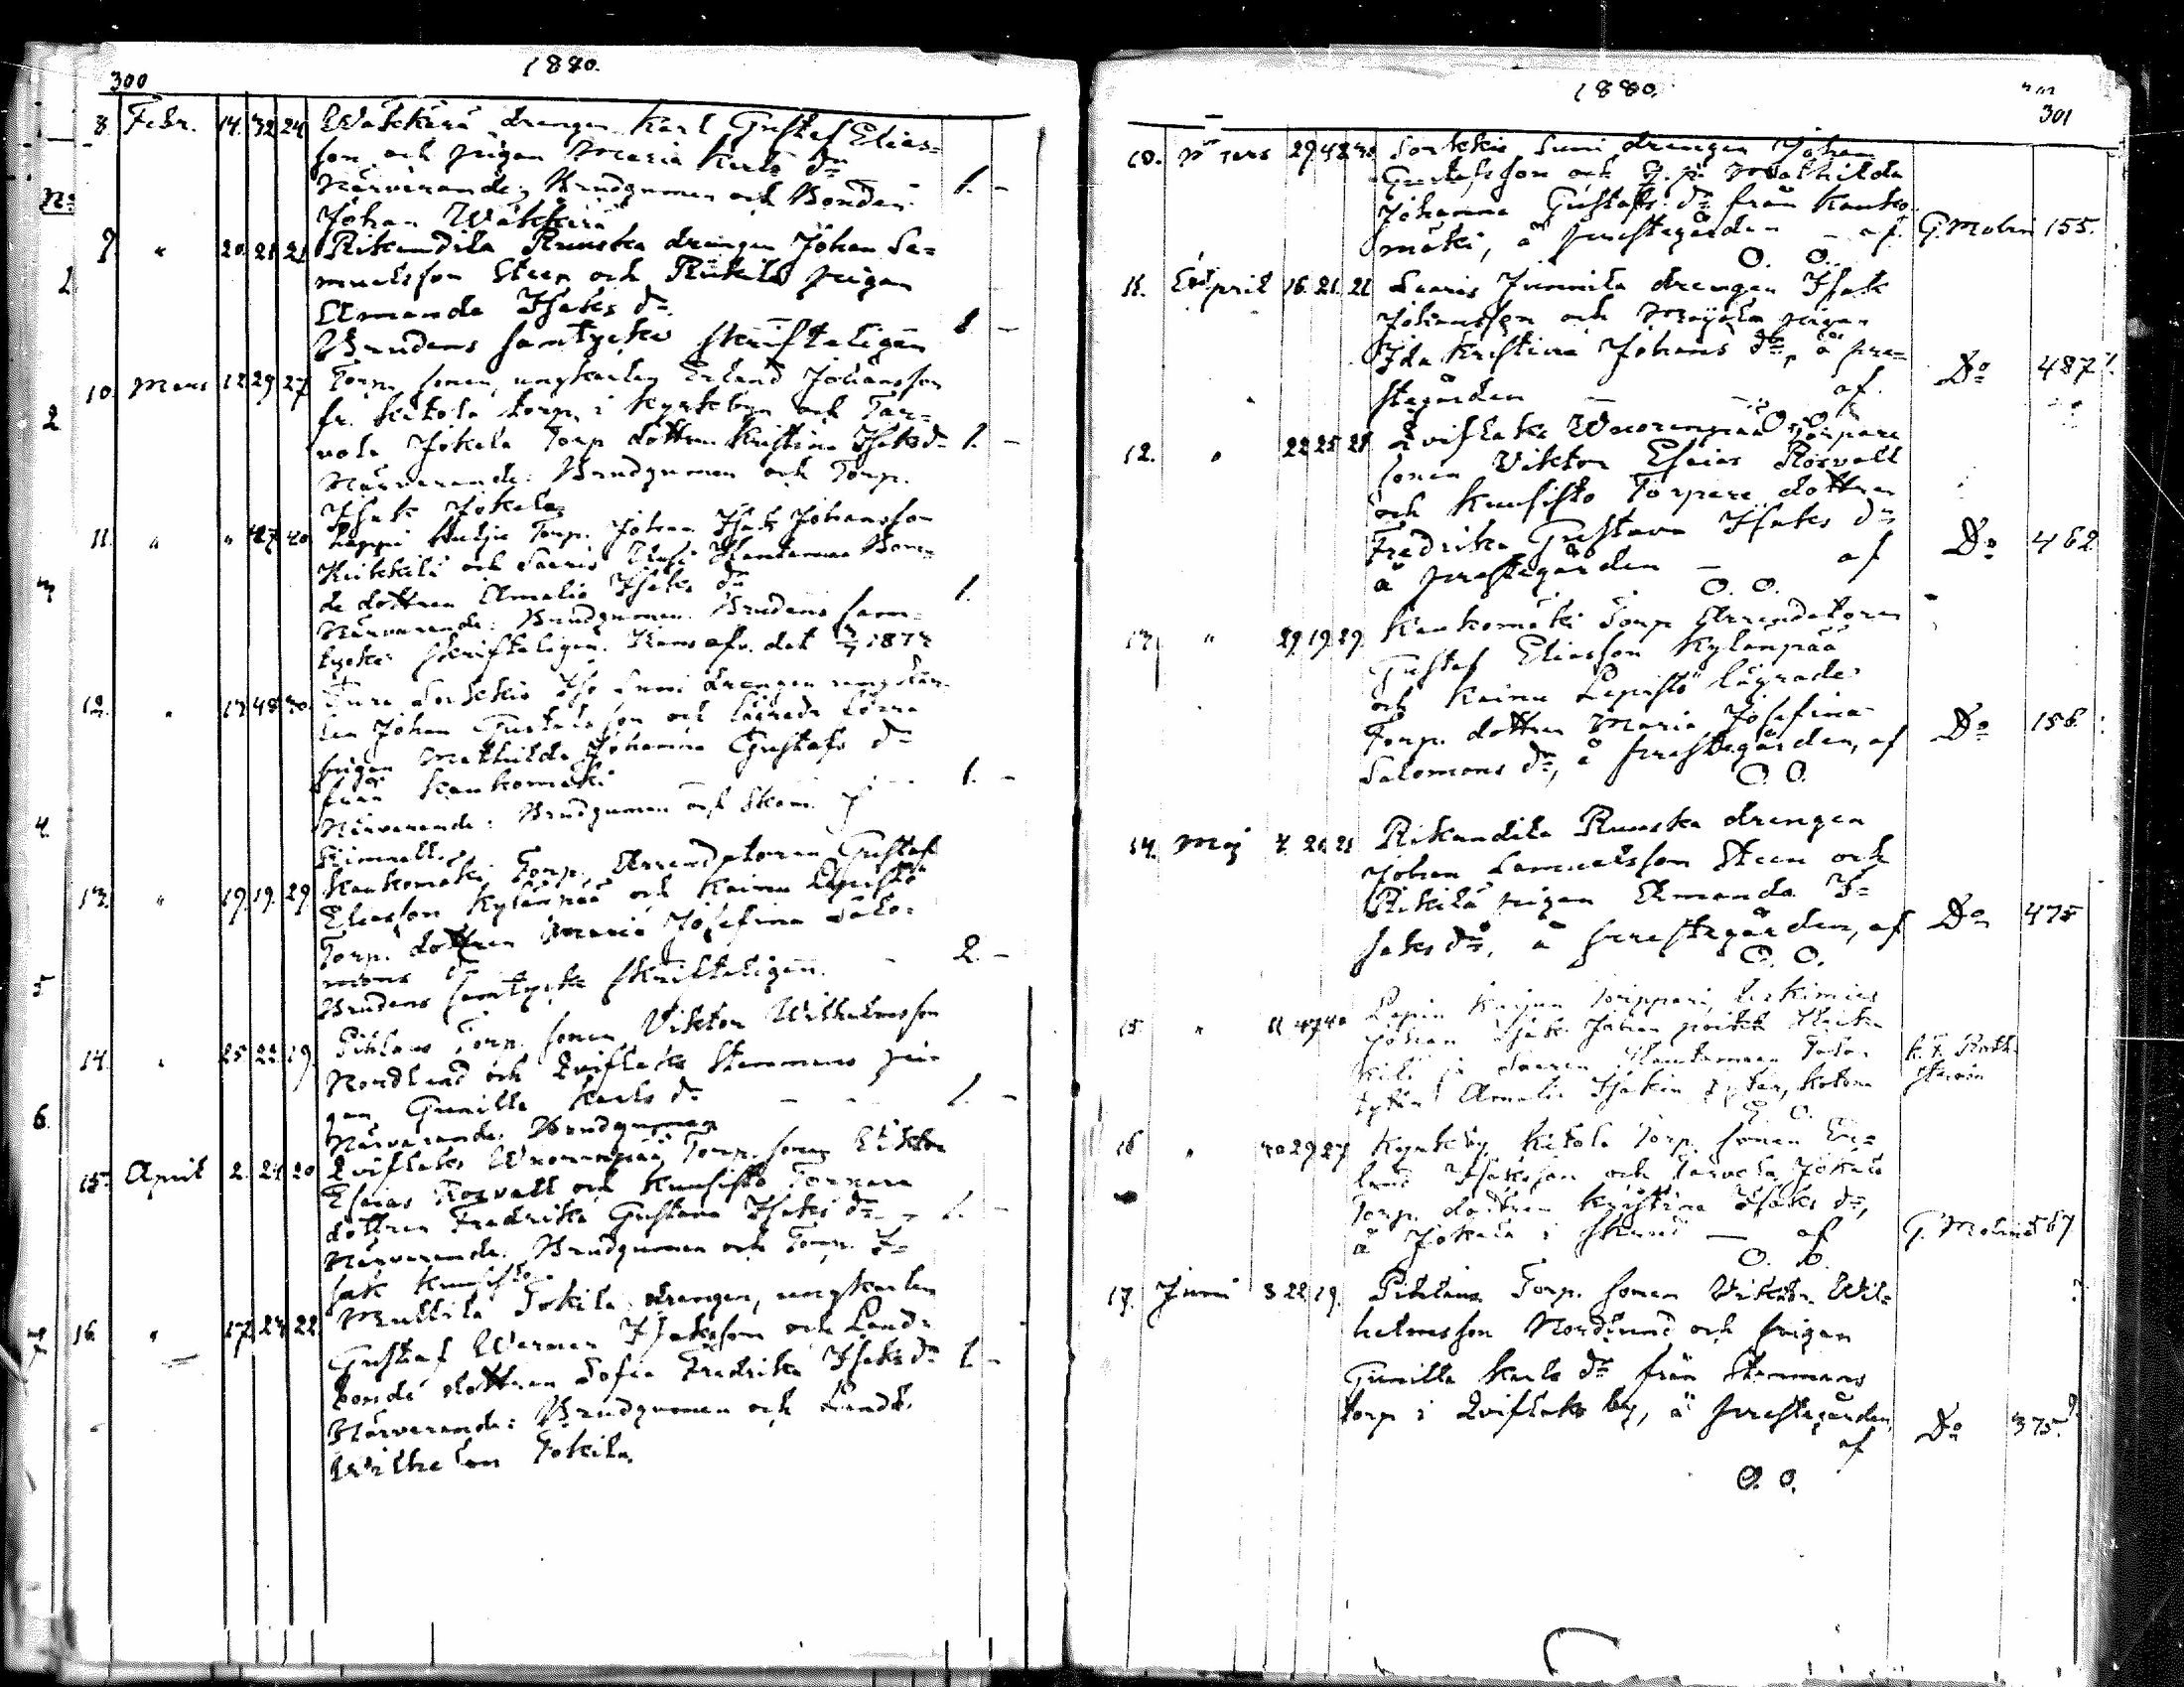 300
1880.
8. Febr. 14. 32 24 Wäkkärä drengen Karl Gustaf Elias=
son och pigan Maria Karls dr
Närvarande: Brudgumen och Bonden 1. –
Johan Wäkkärä
9. " 20. 21 21 Rikandila Ruuska drengen Johan Sa=
muelsson Steen och Rikilä pigan
Amanda Isaks dr
Brudens samtycke skrifteligen 1 –
10. Mars 12 29 27 Torp. sonen, ungkarlen Erland Johansson
fr. Ketola torp i Kyrkobyn och Tar=
vola Jokela Torp dottren Kristina Isaks dr 1. –
Närvarande: Brudgumen och Torp.
Isak Jokela
11. " " 47 40 Torp. Johan Isak Johansson
och Bon=
de dottren Amalia Isaks dr 1.
Närvarande: Brudgumen. Brudens sam=
tycke skrifteligen.
12. " 13 48 30 Sorkkis Suni drengen ungkar=
len Johan Gustafsson och
pigan Mathilda Johanna Gustafs dr
från Kankomäki 1. –
Närvarande: Brudgumen och
13. " 19. 19. 29 Kankomäki Torp. Arrendatoren Gustaf
Eliasson Kylänpää och Kainu Lepistö
Torp. dottren Maria Josefina Salo=
mons dr 2. –
Brudens samtycke skrifteligen.
14. " 25 22 19. Pihlaus Torp. sonen Viktor Wilhelmsson
Nordlund och Qviflaks Stemmans pi=
gan Gunilla Karls dr – – 1. –
Närvarande: Brudgumen
15. April 2. 25 20 Qviflaks Wuorenpää Torp. sonen Viktor
Esaias Rosvall och Kuusisto Torpare
dottren Fredrika Gustava Isaks dr – 1. –
Närvarande: Brudgumen och Torp. I=
sak Kuusisto.
16. " 17. 23 22 Multila Jokila drengen, ungkarlen
Gustaf Werner Isaksson och Land=
bonde dottren Sofia Fredrika Isaks dr 1. –
Närvarande: Brudgumen och Landb.
Wilhelm Jokila.
1880.
301
10. Mars 29 48 30 Sorkkis Suni drengen Johan
Gustafsson och Mathilda
Johanna Gustafs dr från Kanko=
mäki, å prestegården – af G. Molin 155.
O. O.
11. April 16. 21. 21 Laaris Junnila drengen Isak
Johansson och pigan
Ida Kristina Johans dr, å pre=
stegården – – af Do 487
O. O.
12. " 22 25 21 Qviflaks Wuorenpää Torpare
sonen Viktor Esaias Rosvall
och Kuusisto Torpare dottren
Fredrika Gustava Isaks dr
å prestegården – af Do 462
O. O.
13 " 29 19 29. Kankomäki Torp Arrendatoren
Gustaf Eliasson Kylänpää
och Kainu Lepistö lägrade
Torp. dottren Maria Josefina
Salomons dr, å prestegården, af Do 156.
O. O.
14. Maj 4. 21 21 Rikandila Ruuska drengen
Johan Samuelsson Steen och
Rikilä pigan Amanda I=
saks dr, å prestegården, af Do 475
O. O.
15 " 11 47 40 leskimies
Johan Isak Johan poika
Amalia Isakin tytär, kotona
O. O.
16 " 30 29 27 Kyrkoby Ketola Torp. sonen Er=
land Isaksson och Tarvola Jokela
Torp. dottren Kristina Isaks dr,
å Jokela i – af G. Molin 567
O. O.
17. Juni 3 22 19. Pihlaus Torp. sonen Viktor Wil=
helmsson Nordlund och pigan
Gunilla Karls dr från Stemmans
torp i Qviflaks by, å prestegården,
af Do 375.
O. O.